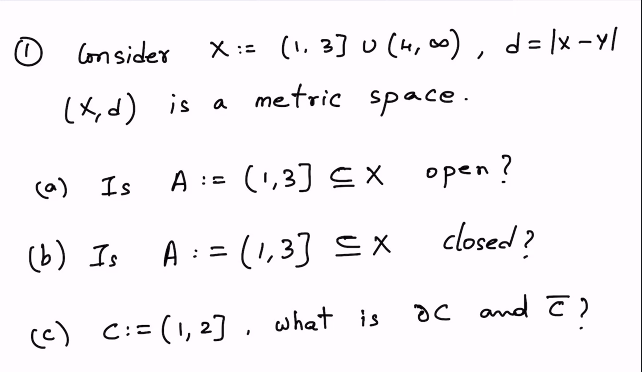 ① Consider X := (1, 3] ∪ (4, ∞), d = |x - y|
(X, d) is a metric space.
(a) Is A := (1, 3] ⊆ X open?
(b) Is A := (1, 3] ⊆ X closed?
(c) C := (1, 2], what is ∂C and C̅?